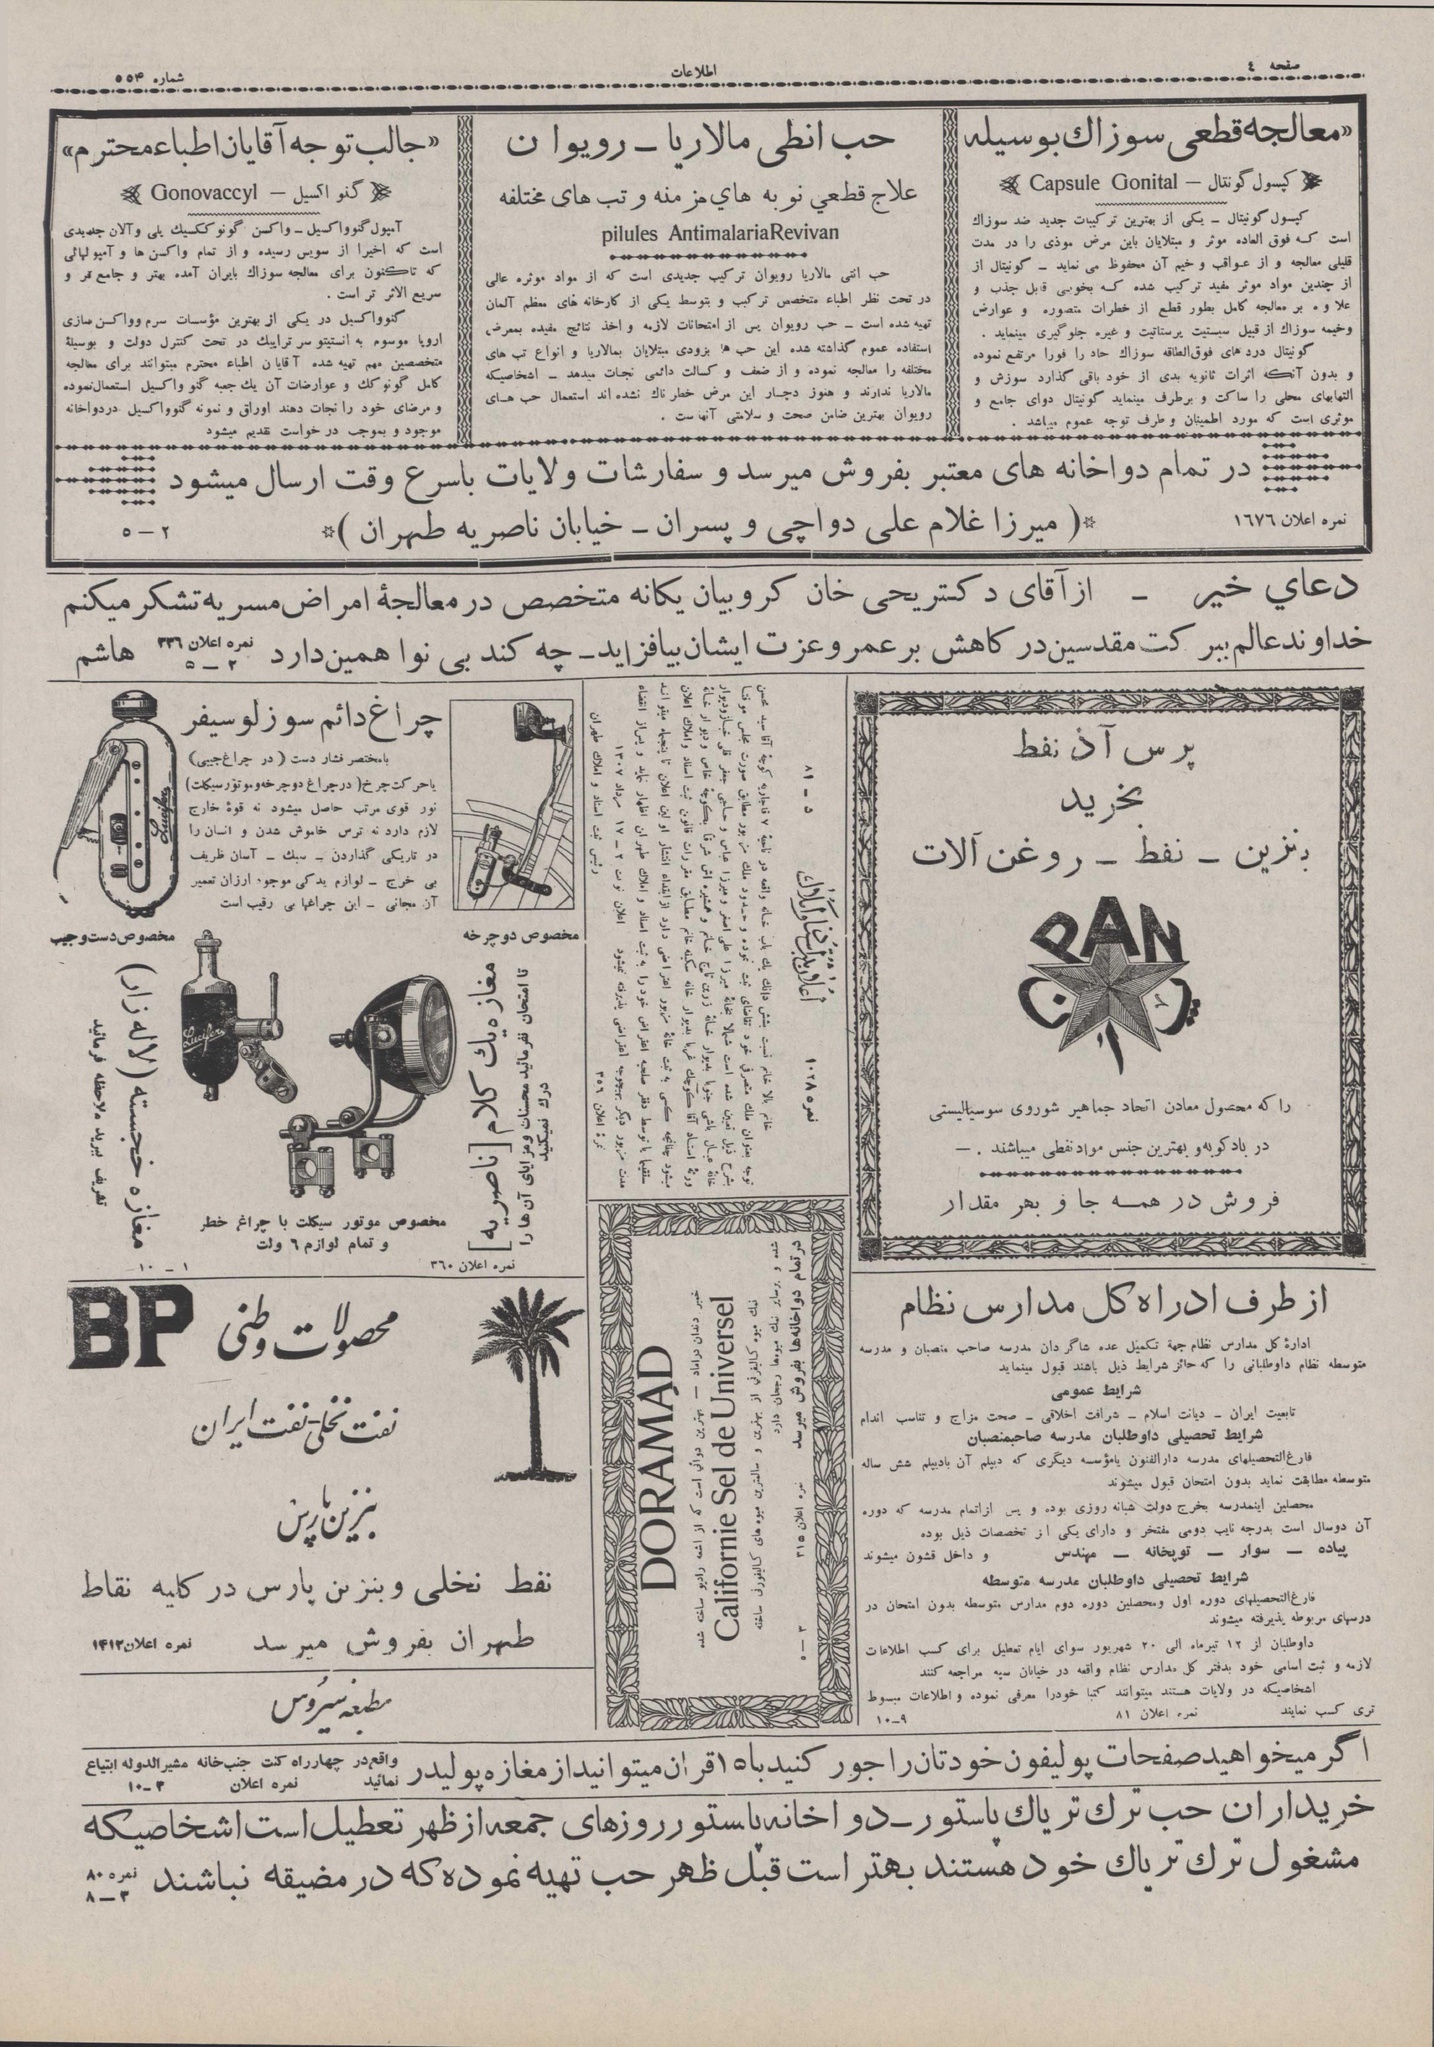 صفحه ٤
اطلاعات
شماره ٥٥٤
«معالجه قطعی سوزاك بوسیله
کپسول گونتال — Capsule Gonital
کپسول گونیتال ــ یکی از بهترین ترکیبات جدید ضد سوزاك
است که فوق العاده موثر و مبتلایان باین مرض موذی را در مدت
قلیلی معالجه و از عواقب وخیم آن محفوظ می نماید ــ گونیتال از
از چندین مواد موثر مفید ترکیب شده که بخوبی قابل جذب و
علاوه بر معالجه کامل بطور قطع از خطرات متصوره و عوارض
وخیمه سوزاك از قبیل سیستیت پرستاتیت و غیره جلوگیری مینماید .
گونیتال درد های فوق‌الطاقه سوزاك حاد را فورا مرتفع نموده
و بدون آنکه اثرات ثانویه بدی از خود باقی گذارد سوزش و
التهابهای محلی را ساکت و برطرف مینماید گونیتال دوای جامع و
موثری است که مورد اطمینان و طرف توجه عموم میباشد .
حب انطی مالاریا ــ رویوان
علاج قطعي نوبه هاي مزمنه و تب های مختلفه
pilules AntimalariaRevivan
حب انتی مالاریا رویوان ترکیب جدیدی است که از مواد موثره عالی
در تحت نظر اطباء متخصص ترکیب و بتوسط یکی از کارخانه های معظم آلمان
تهیه شده است ــ حب رویوان پس از امتحانات لازمه و اخذ نتائج مفیده بمعرض
استفاده عموم گذاشته شده این حب ها بزودی مبتلایان بمالاریا و انواع تب های
مختلفه را معالجه نموده و از ضعف و کسالت دائمی نجات میدهد ــ اشخاصیکه
مالاریا ندارند و هنوز دچار این مرض خطرناك نشده اند استعمال حب های
رویوان بهترین ضامن صحت و سلامتی آنهاست .
«جالب توجه آقایان اطباء محترم»
گنو اکسیل — Gonovaccyl
آمپول گنوواکسیل ــ واکسن گونوککسیك پلی والان جدیدی
است که اخیرا از سویس رسیده و از تمام واکسن ها و آمپولهائی
که تاکنون برای معالجه سوزاك بایران آمده بهتر و جامع تر و
سریع الاثر تر است .
گنوواکسیل در یکی از بهترین مؤسسات سرم وواکسن سازی
اروپا موسوم به انستیتو سرتراپیك در تحت کنترل دولت و بوسیلهٔ
متخصصین مهم تهیه شده آقایان اطباء محترم میتوانند برای معالجه
کامل گونوکك و عوارضات آن یك جعبه گنو واکسیل استعمال‌نموده
و مرضای خود را نجات دهند اوراق و نمونه گنوواکسیل دردواخانه
موجود و بموجب درخواست تقدیم میشود
در تمام دواخانه های معتبر بفروش میرسد و سفارشات ولایات باسرع وقت ارسال میشود
نمره اعلان ١٦٧٦
( میرزا غلام علی دواچی و پسران ــ خیابان ناصریه طهران )
٢ — ٥
دعاي خیر ــ از آقای دکتر یحیی خان کروبیان یگانه متخصص در معالجهٔ امراض مسریه تشکر میکنم
خداوند عالم ببرکت مقدسین در کاهش بر عمر و عزت ایشان بیافزاید ــ چه کند بی نوا همین دارد
نمره اعلان ٣٣٦
٢ — ٥
هاشم
پرس آذ نفط
بخرید
بنزین ــ نفط ــ روغن آلات
PAN
را که محصول معادن اتحاد جماهیر شوروی سوسیالیستی
در بادکوبه و بهترین جنس مواد نفطی میباشند . —
فروش در همه جا و بهر مقدار
نمره ١٠٢٨
د ــ ٨١
رئیس ثبت اسناد و املاك طهران
نمرهٔ اعلان ٣٥٦
چراغ دائم سوز لوسیفر
بامختصر فشار دست (در چراغ‌جیبی)
یاحرکت‌چرخ(درچراغ دوچرخه وموتورسیکلت)
نور قوی مرتب حاصل میشود نه قوهٔ خارج
لازم دارد نه ترس خاموش شدن و انسان را
در تاریکی گذاردن ــ سبك ــ آسان ظریف
بی خرج ــ لوازم یدکی موجود ارزان تعمیر
آن مجانی ــ این چراغها بی رقیب است
Lucifer
مخصوص دوچرخه
مخصوص دست وجیب
Lucifer
مغازه یك کلام [ناصریه]
تا امتحان نفرمائید محسنات ومزایای آن ها را
درك نمیکنید
مغازه خجسته (لاله زار)
تشریف ببرید ملاحظه فرمائید
مخصوص موتور سیکلت با چراغ خطر
و تمام لوازم ٦ ولت
نمره اعلان ٣٦٠
١ ــ ١٠
DORAMAD
خمیر دندان درآماد — بهترین دوائی است که از اشعه رادیو ساخته شده
Californie Sel de Universel
نمك میوه کالیفرنی از بهترین و سالمترین میوه های کالیفورنی ساخته
شده و برسایر نمك میوه‌ها رجحان دارد
درتمام دواخانه‌ها بفروش میرسد
نمره اعلان ٣١٥
٣ — ٥
BP
محصولات وطنی
نفت نخلی-نفت ایران
بنزین پارس
نفط نخلی و بنزین پارس در کلیه نقاط
طهران بفروش میرسد
نمره اعلان ١٤١٢
مطبعه سیروس
از طرف اداره کل مدارس نظام
ادارهٔ کل مدارس نظام جههٔ تکمیل عده شاگردان مدرسه صاحب منصبان و مدرسه
متوسطه نظام داوطلبانی را که حائز شرایط ذیل باشند قبول مینماید
شرایط عمومی
تابعیت ایران ــ دیانت اسلام ــ شرافت اخلاقی ــ صحت مزاج و تناسب اندام
شرایط تحصیلی داوطلبان مدرسه صاحبمنصبان
فارغ‌التحصیلهای مدرسه دارالفنون یامؤسسه دیگری که دیپلم آن بادیپلم شش ساله
متوسطه مطابقت نماید بدون امتحان قبول میشوند
محصلین اینمدرسه بخرج دولت شبانه روزی بوده و پس ازاتمام مدرسه که دوره
آن دوسال است بدرجه نایب دومی مفتخر و دارای یکی از تخصصات ذیل بوده
پیاده ــ سوار ــ توپخانه ــ مهندس و داخل قشون میشوند
شرایط تحصیلی داوطلبان مدرسه متوسطه
فارغ‌التحصیلهای دوره اول ومحصلین دوره دوم مدارس متوسطه بدون امتحان در
درسهای مربوطه پذیرفته میشوند
داوطلبان از ١٢ تیرماه الی ٢٠ شهریور سوای ایام تعطیل برای کسب اطلاعات
لازمه و ثبت اسامی خود بدفتر کل مدارس نظام واقعه در خیابان سپه مراجعه کنند
اشخاصیکه در ولایات هستند میتوانند کتبا خودرا معرفی نموده و اطلاعات مبسوط
تری کسب نمایند نمره اعلان ٨١ ٩—١٠
اگر میخواهید صفحات پولیفون خودتان را جور کنید با ١٥ قران میتوانید از مغازه پولیدر
واقع در چهارراه کنت جنب‌خانه مشیرالدوله ابتیاع
نمائید نمره اعلان ٣—١٠
خریداران حب ترك تریاك پاستور ــ دواخانه پاستور روزهای جمعه از ظهر تعطیل است اشخاصیکه
مشغول ترك تریاك خود هستند بهتر است قبل ظهر حب تهیه نموده که در مضیقه نباشند
نمره ٨٠
٣ — ٨